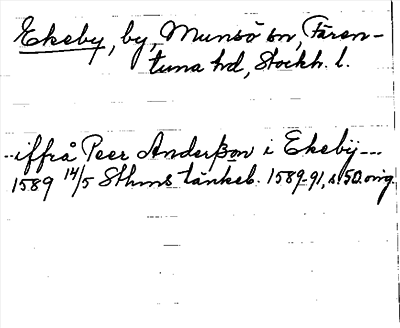 Ekeby, by, Munsö sn, Fären-
tuna hd, Stockh. l.
--iffrå Peer Anderßon i Ekebÿ---
1589 14/5 Sthms tänkeb. 1589-91, s. 50. orig.